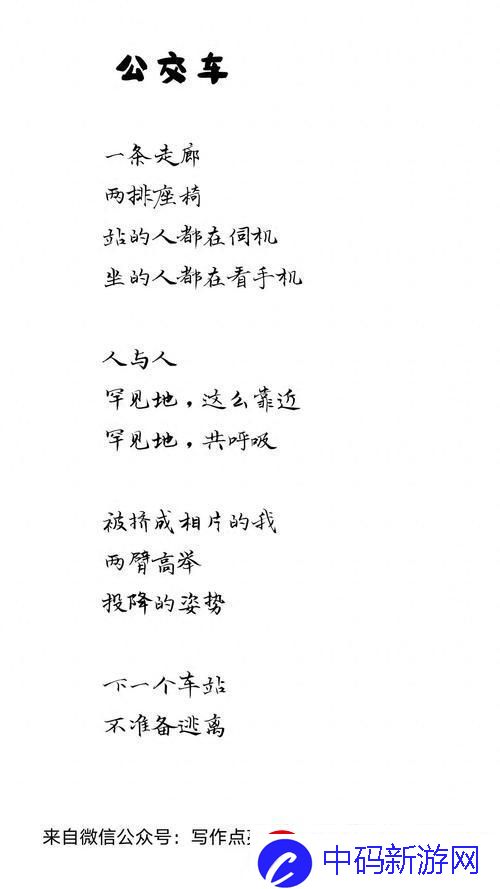 公交车
一条走廊
两排座椅
站的人都在伺机
坐的人都在看手机
人与人
罕见地，这么靠近
罕见地，共呼吸
被挤成相片的我
两臂高举
投降的姿势
下一个车站
不准备逃离
来自微信公众号：写作点
中码新游网